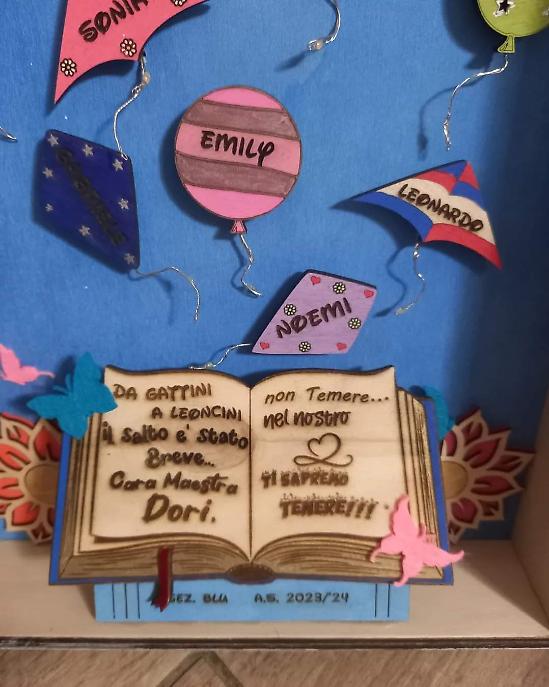 SONIA
EMILY
LEONARDO
NOEMI
DA GATTINI
A LEONCINI
il salto e' stato
Breve...
Cara Maestra
Dori.
non Temere...
nel nostro
TI SAPREMO
TENERE!!!
SEZ. BLU A.S. 2023/24